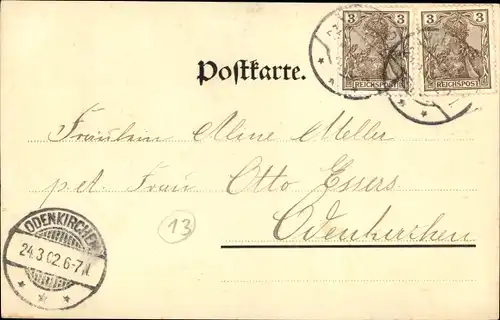 3 3
REICHSPOST REICHSPOST
Postkarte.
Fräulein Aline Meller
p. ad. Frau Otto Essers
Odenkirchen
13
ODENKIRCHEN
24.3.02.6-7.N.